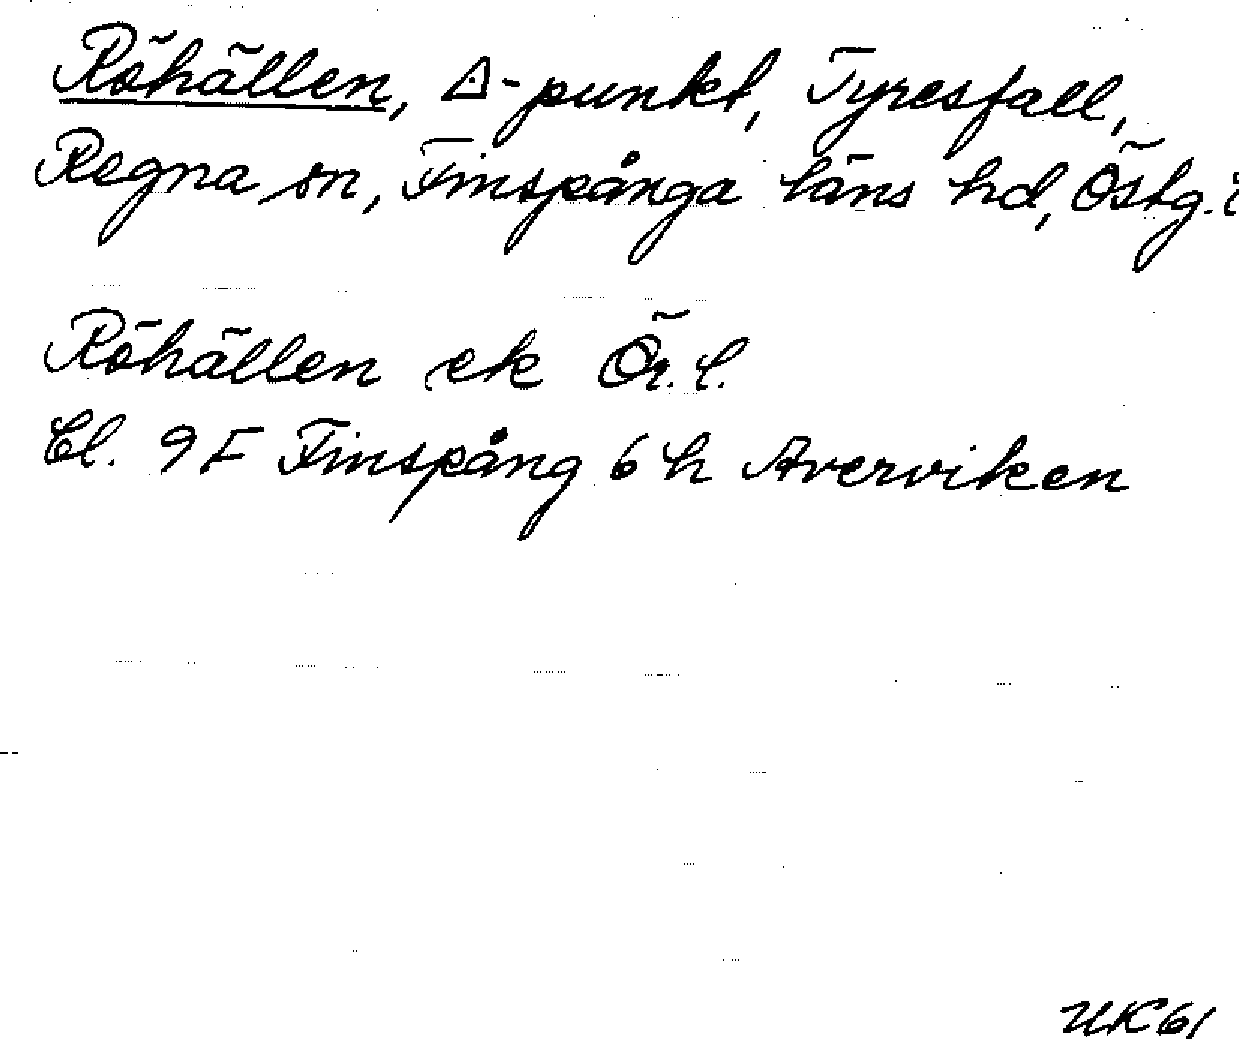 Röhällen, △-punkt, Tyresfall,
Regna sn, Finspånga läns hd, Östg.
Röhällen ek Ör. l.
Bl. 9F Finspång 6h Averviken
UK61